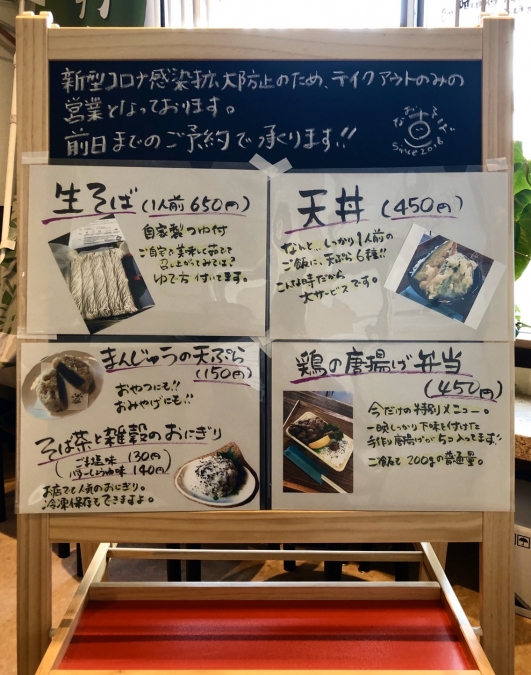 新型コロナ感染拡大防止のため、テイクアウトのみの
営業となっております。
前日までのご予約で承ります!!
なおすそば
since 2018
生そば (1人前 650円)
自家製つゆ付
ご自宅で美味しく茹でて
召し上がってみては?
ゆで方付いてます。
天丼 (450円)
なんと…しっかり1人前の
ご飯に、天ぷら6種!!
こんな時だから
大サービスです。
まんじゅうの天ぷら
(150円)
おやつにも!!
おみやげにも!!
そば茶と雑穀のおにぎり
(ごま塩味 130円)
(バターしょうゆ味 140円)
お店でも人気のおにぎり。
冷凍保存もできますよ。
鶏の唐揚げ弁当
(450円)
今だけの特別メニュー。
一晩しっかり下味を付けた
手作り唐揚げが5コ入ってます!!
ご飯も200gの普通量。